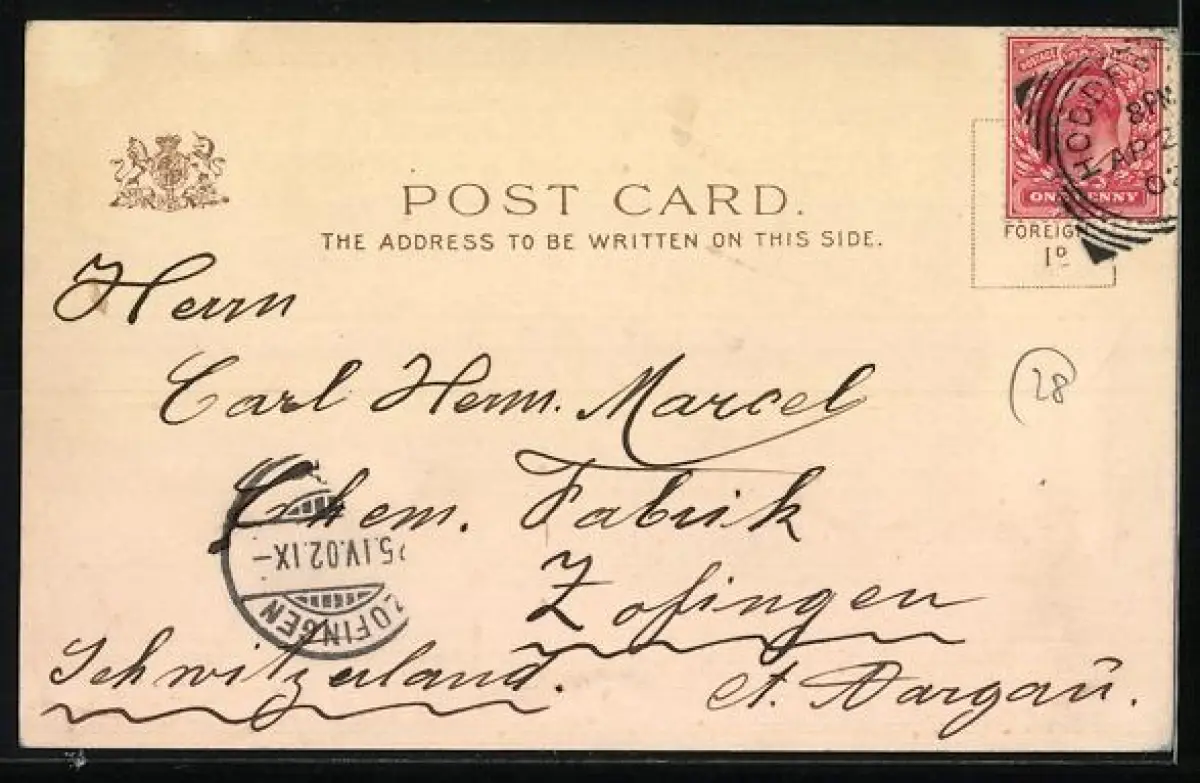 POSTAGE
HODDE
8PM
AP 2
02
ONE PENNY
POST CARD.
THE ADDRESS TO BE WRITTEN ON THIS SIDE.
FOREIGN
1D
Herrn
Carl Herm. Marcel
28
Chem. Fabrik
25.IV.02.IX-
ZOFINGEN
Zofingen
Schwitzerland.
Ct. Aargau.